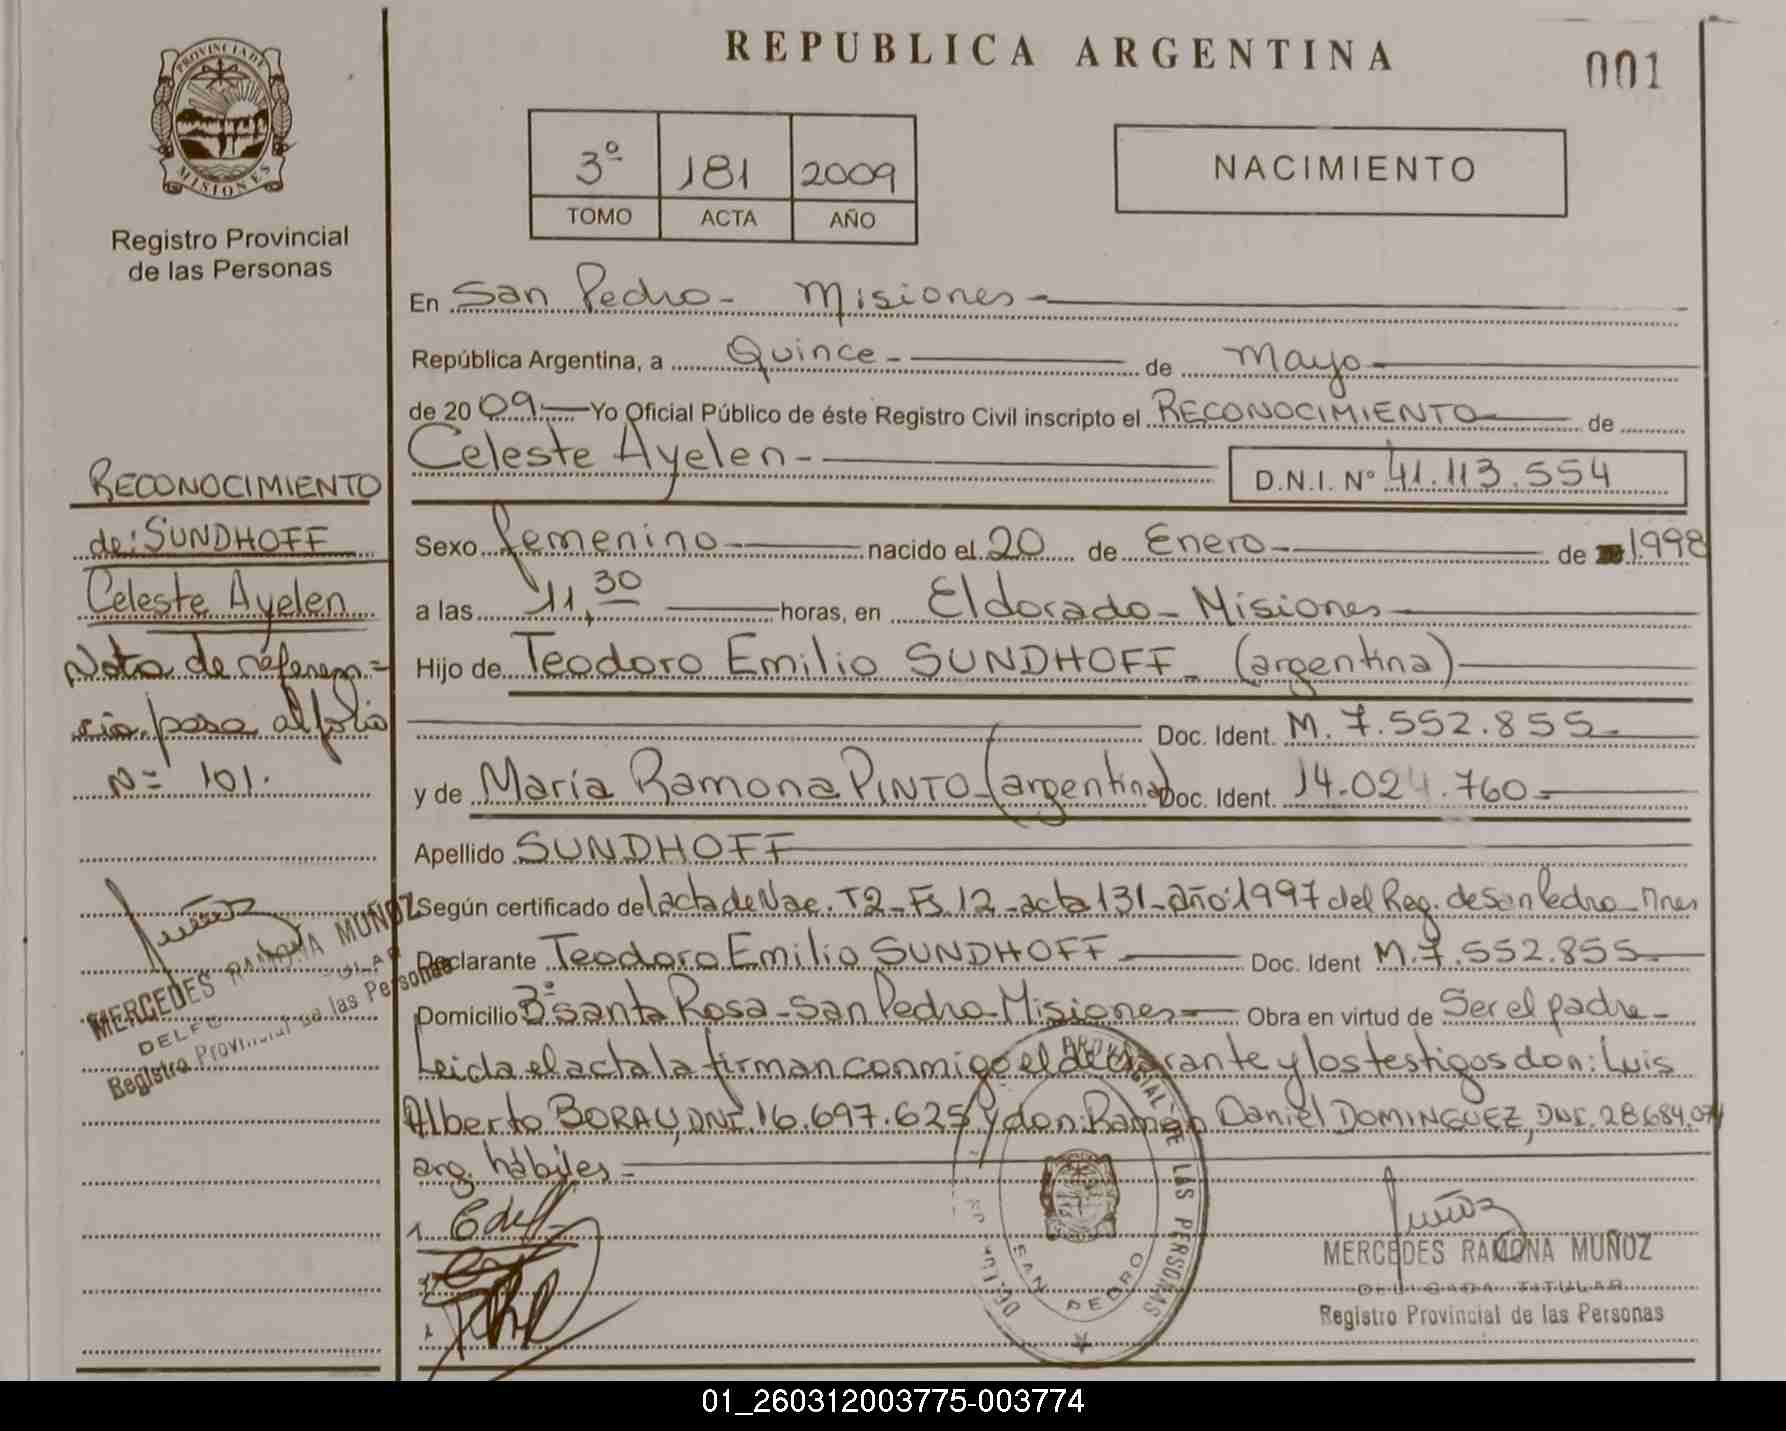 REPUBLICA ARGENTINA
001
PROVINCIA DE
MISIONES
Registro Provincial
de las Personas
3º 181 2009
TOMO ACTA AÑO
NACIMIENTO
En San Pedro - Misiones
República Argentina, a Quince de Mayo
de 2009 Yo Oficial Público de éste Registro Civil inscripto el RECONOCIMIENTO de
Celeste Ayelen D.N.I. Nº 41.113.554
Sexo femenino nacido el 20 de Enero de 1998
a las 11,30 horas, en Eldorado - Misiones
Hijo de Teodoro Emilio SUNDHOFF - (argentina)
Doc. Ident. M. 7.552.855
y de María Ramona PINTO - (argentina) Doc. Ident. 14.024.760
Apellido SUNDHOFF
Según certificado de lacta de Nac. T2 - Fs 12 - acta 131 - año: 1997 del Reg. de San Pedro - Mnes
Declarante Teodoro Emilio SUNDHOFF Doc. Ident M. 7.552.855
Domicilio Bº Santa Rosa - San Pedro - Misiones Obra en virtud de Ser el padre -
Leida el acta la firman conmigo el declarante y los testigos don: Luis
Alberto BORAU, DNI. 16.697.625 y don: Ramon Daniel DOMINGUEZ, DNI. 28.684.074
arg. hábiles
RECONOCIMIENTO
de: SUNDHOFF
Celeste Ayelen
Nota de referen=
cia pasa al folio
Nº 101.
Muñoz
MERCEDES RAMONA MUÑOZ
Registro Provincial de las Personas
PROVINCIAL DE LAS PERSONAS
SAN PEDRO
Muñoz
MERCEDES RAMONA MUÑOZ
DELEGADA TITULAR
Registro Provincial de las Personas
01_260312003775-003774